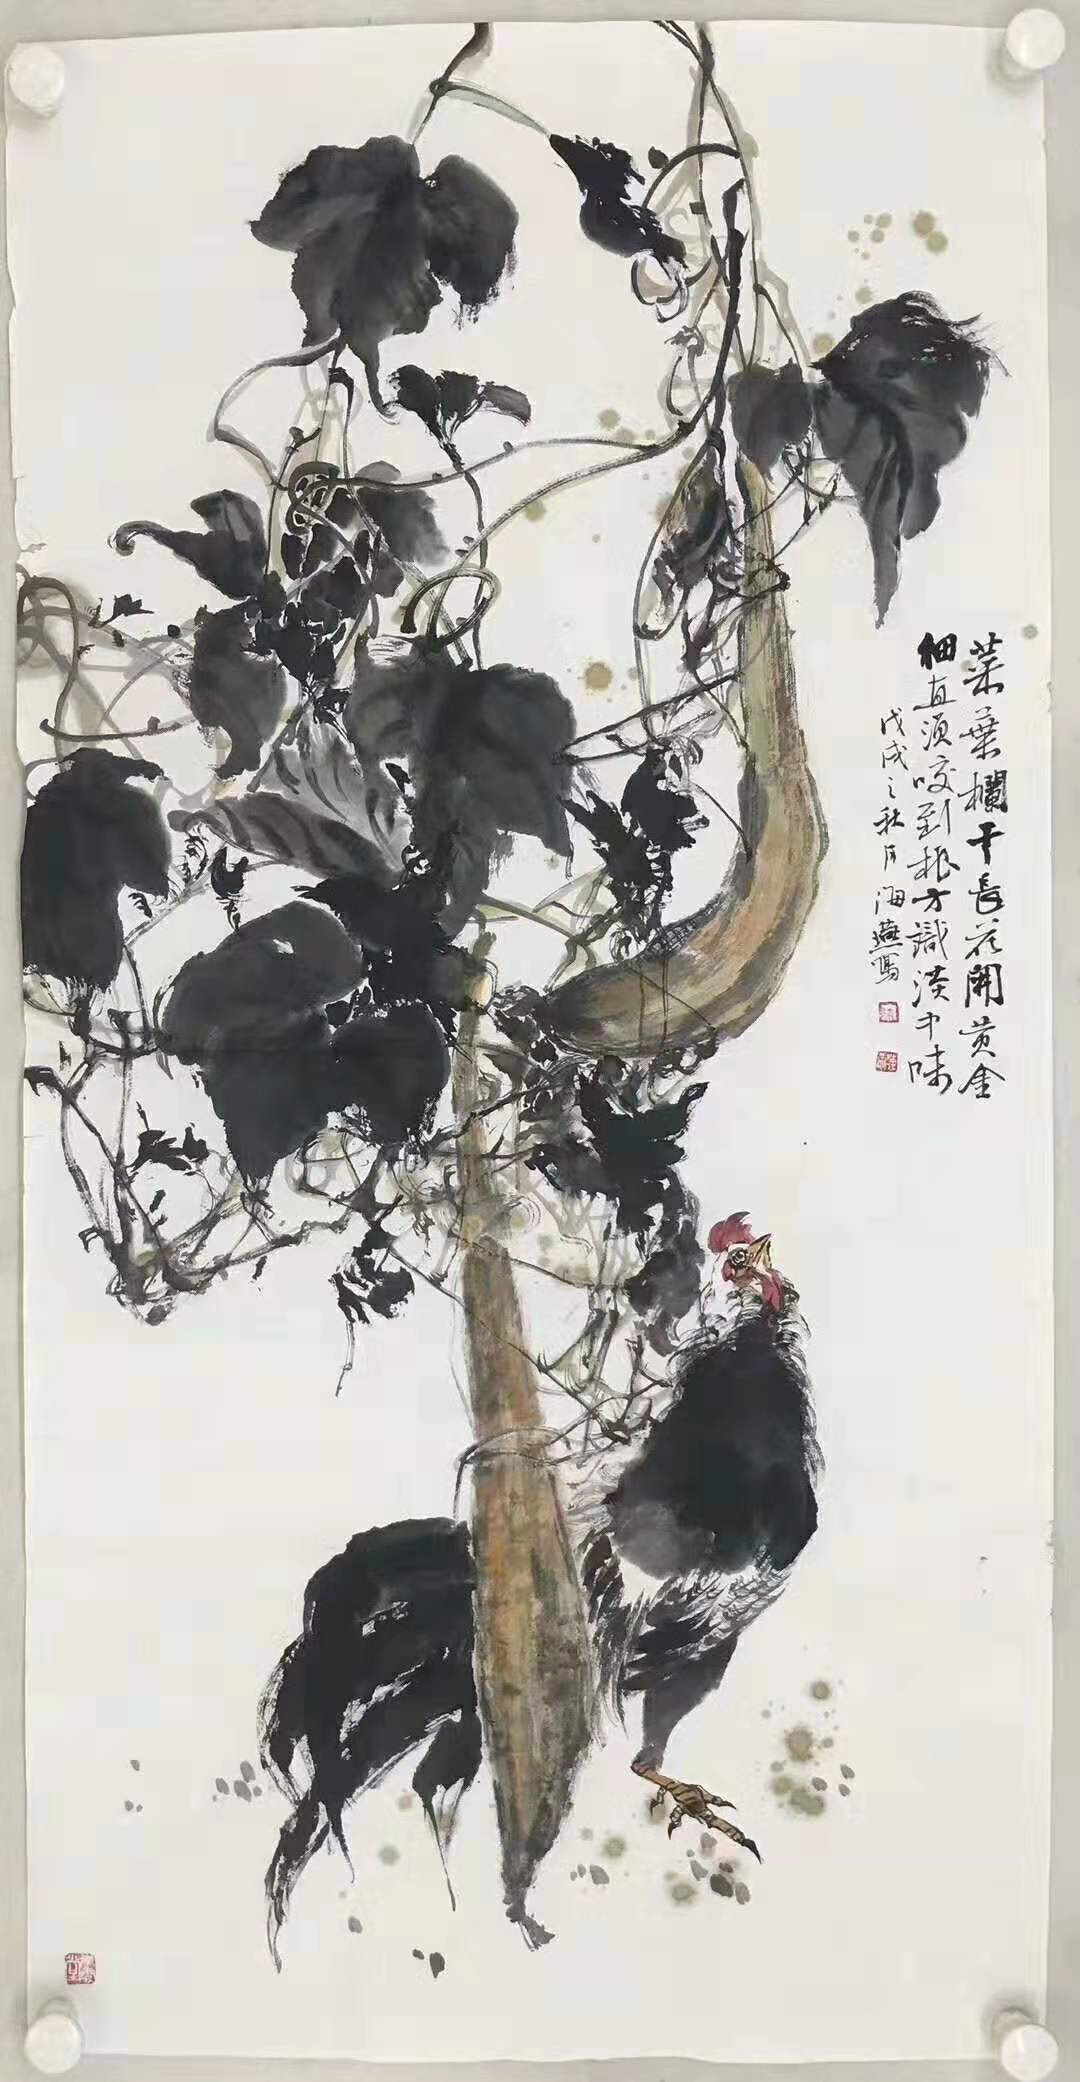 菜葉欄干長花開黄金
細直須咬到根方識淡中味
戊戌之秋月海燕寫